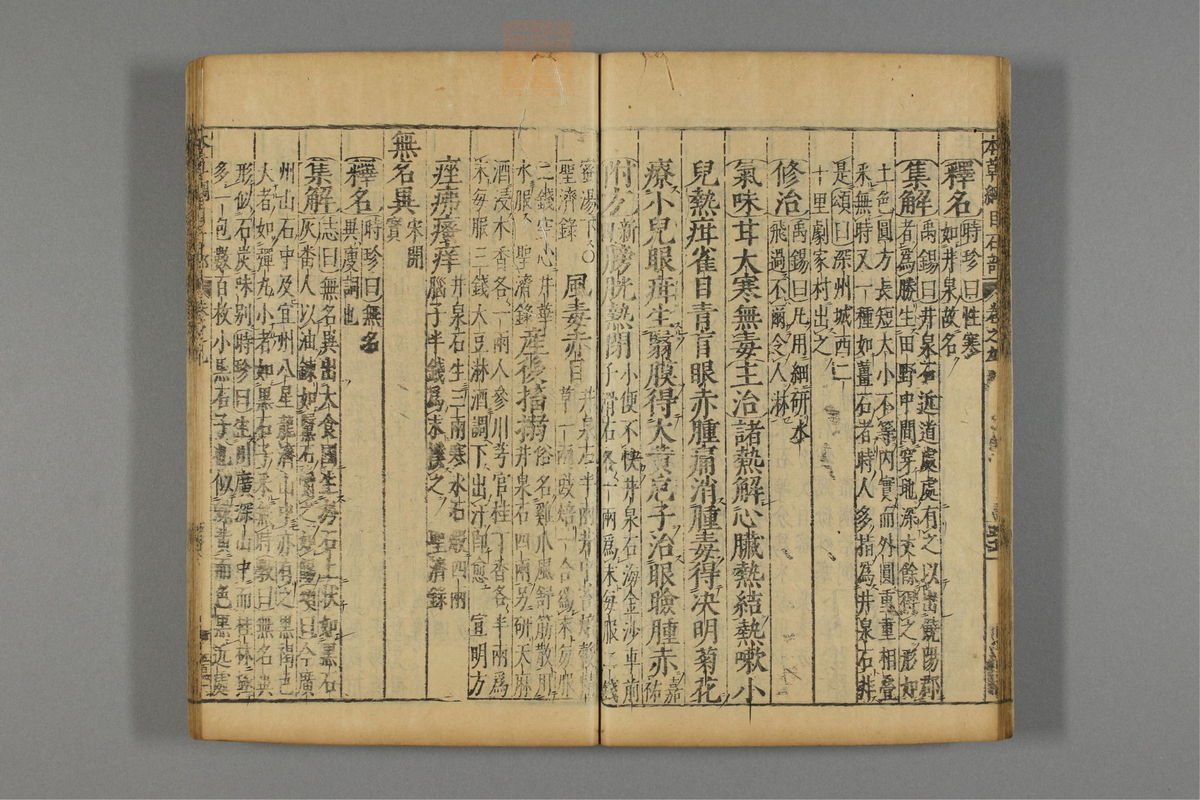 本草綱目石部
釋名時珍曰性寒
如井泉故名
集解禹錫曰井泉石近道處處有之以出饒陽郡
者為勝生田野中間穿地深丈餘得之形如
土色圓方長短大小不等內實而外圓重重相疊
采無時又一種如薑石者時人多指為井泉石非
是頌曰深州城西二
十里劇家村出之
修治禹錫曰凡用細研水
飛過不爾令人淋
氣味甘大寒無毒主治諸熱解心臟熱結熱嗽小
兒熱疳雀目青盲眼赤腫痛消腫毒得決明菊花
療小兒眼疳生翳膜得大黃梔子治眼瞼腫赤嘉祐
附方新膀胱熱閉小便不快井泉石海金沙車前
子滑石各一兩為末每服二錢
蜜湯下
聖濟錄
風毒赤目井泉石半兩
草一兩
二錢空心井華
水服 聖濟錄
產後搐搦俗名雞爪風舒筋散用
井泉石四兩另研天麻
酒浸木香各一兩人參川芎官桂丁香各半兩為
末每服三錢大豆淋酒調下出汗即愈 宣明方
痤疿瘙痒井泉石生三兩寒水石煅四兩
腦子半錢為末撲之 聖濟錄
無名異宋開寶
釋名時珍曰無名
異廋詞也
集解志曰無名異出大食國生于石上狀如黑石
炭番人以油鍊如黳石嚼之如餳頌曰今廣
州山石中及宜州八星龍濟山中亦有之黑褐色
大者如彈丸小者如黑石子采無時斅曰無名異
形似石炭味別時珍曰生川廣深山中而桂林極
多一包數百枚小黑石子也似蛇黃而色黑近處